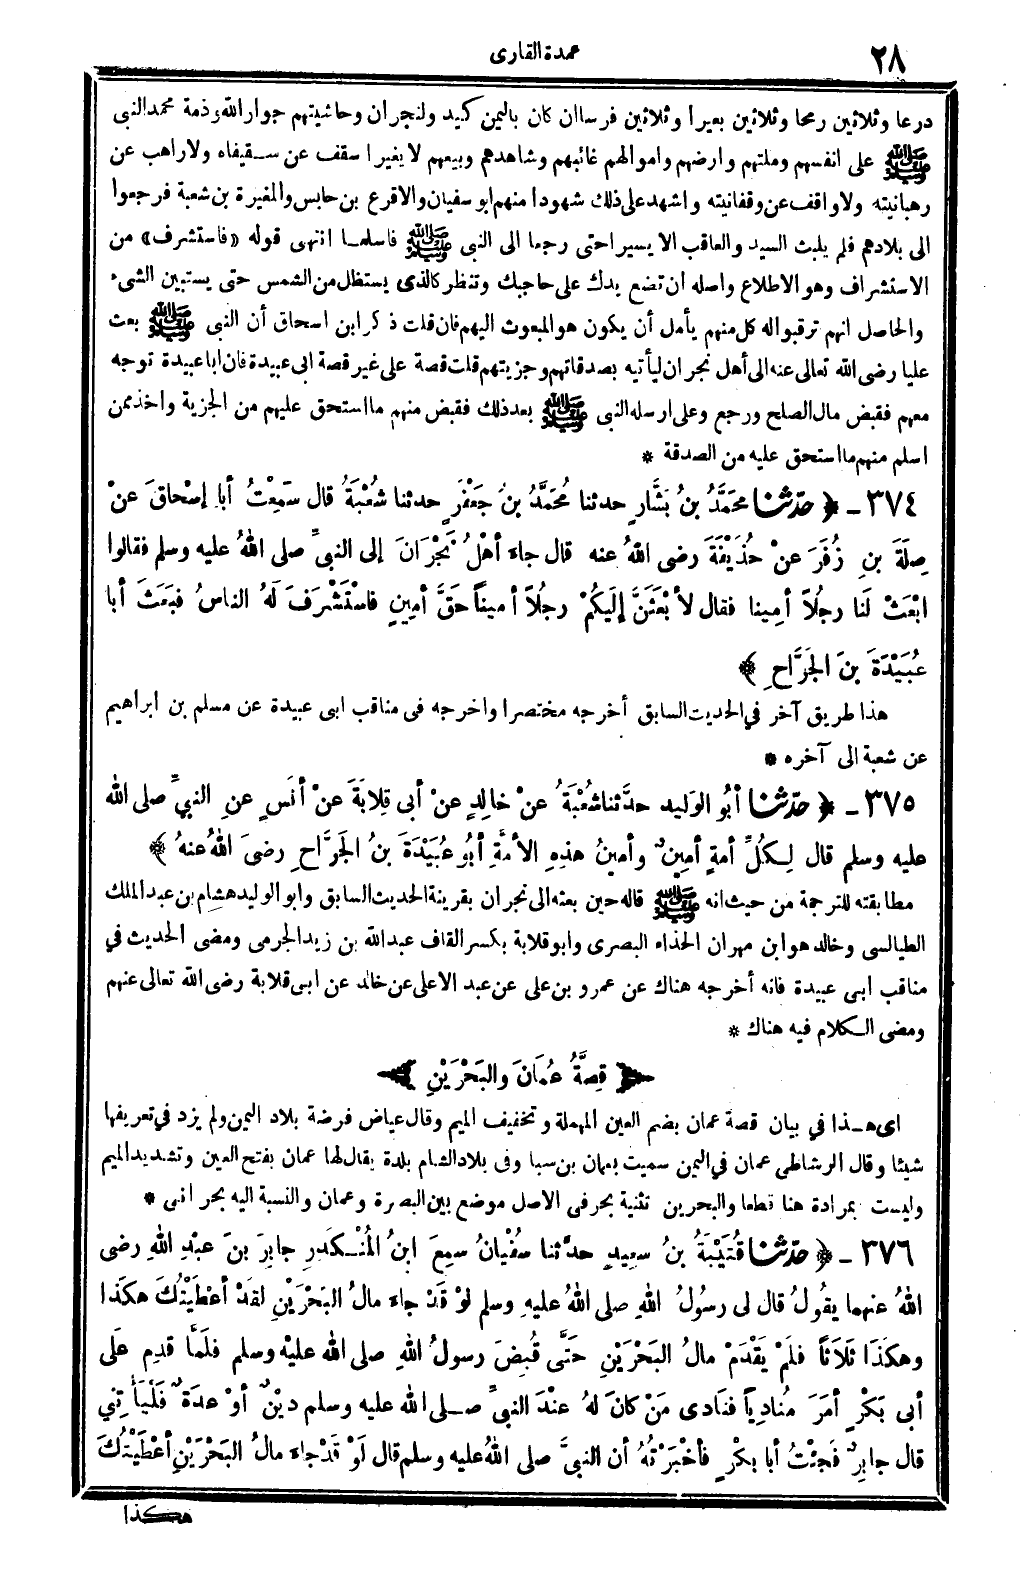 ٢٨
عمدة القارى
درعا وثلاثين رمحا وثلاثين بعيرا وثلاثين فرسا ان كان باليمن كيد ولنجران وحاشيتهم جوار الله وذمة محمد النبى
ﷺ على انفسهم وملتهم وارضهم واموالهم غائبهم وشاهدهم وبيعهم لا يغيرا سقف عن سقيفاه ولا راهب عن
رهبانيته ولا واقف عن وقفانيته واشهد على ذلك شهودا منهم ابو سفيان والاقرع بن حابس والمغيرة بن شعبة فرجعوا
الى بلادهم فلم يلبث السيد والعاقب الا يسيرا حتى رجعا الى النبى ﷺ فاسلما انتهى قوله «فاستشرف» من
الاستشراف وهو الاطلاع واصله ان تضع يدك على حاجبك وتنظر كالذى يستظل من الشمس حتى يستبين الشىء
والحاصل انهم ترقبوا له كل منهم يأمل أن يكون هو المبعوث اليهم فان قلت ذكر ابن اسحاق أن النبى ﷺ بعث
عليا رضى الله تعالى عنه الى أهل نجران ليأتيه بصدقاتهم وجزيتهم قلت قصة على غير قصة ابى عبيدة فان ابا عبيدة توجه
معهم فقبض مال الصلح ورجع وعلى ارسله النبى ﷺ بعد ذلك فقبض منهم ما استحق عليهم من الجزية واخذ ممن
اسلم منهم ما استحق عليه من الصدقة *
٣٧٤ - ﴿ حدثنا محَمَّدُ بنُ بَشَّارٍ حدثنا مُحَمَّدُ بنُ جَعْفَرٍ حدثنا شُعْبَةُ قال سَمِعْتُ أبا إسْحاقَ عنْ
صِلَةَ بنِ زُفَرَ عنْ حُذَيْفَةَ رضى اللهُ عنه قال جاءَ أهْلُ نَجْرَانَ إلى النبىِّ صلى اللهُ عليه وسلم فقالوا
ابْعَثْ لَنا رجُلاً أمِينا فقال لأَ بْعَثَنَّ إلَيكُمْ رجُلاً أميناً حَقَّ أمِينٍ فاسْتَشْرَفَ لَهُ الناسُ فبَعَثَ أبا
عُبَيْدَةَ بنَ الجَرَّاحِ ﴾
هذا طريق آخر في الحديث السابق أخرجه مختصرا واخرجه فى مناقب ابى عبيدة عن مسلم بن ابراهيم
عن شعبة الى آخره *
٣٧٥ - ﴿ حدثنا أبُو الوَليد حدَّثنا شُعْبَةُ عنْ خالِدٍ عنْ أبى قِلابَةَ عنْ أنَسٍ عنِ النبيِّ صلى الله
عليه وسلم قال لِكُلِّ أمةٍ أمِينٌ وأمينُ هذِهِ الأمَّةِ أبُو عُبَيْدَةَ بنُ الجَرَّاحِ رضىَ اللهُ عنهُ ﴾
مطابقته للترجمة من حيث انه ﷺ قاله حين بعثه الى نجران بقرينة الحديث السابق وابو الوليد هشام بن عبد الملك
الطيالسى وخالد هو ابن مهران الحذاء البصرى وابو قلابة بكسر القاف عبد الله بن زيد الجرمى ومضى الحديث في
مناقب ابى عبيدة فانه أخرجه هناك عن عمرو بن على عن عبد الاعلى عن خالد عن ابى قلابة رضى الله تعالى عنهم
ومضى الكلام فيه هناك *
﴿ قِصَّةُ عُمَانَ والبَحْرَيْنِ ﴾
اى هذا في بيان قصة عمان بضم العين المهملة وتخفيف الميم وقال عياض فرضة بلاد اليمن ولم يزد في تعريفها
شيئا وقال الرشاطى عمان في اليمن سميت بعمان بن سبا وفى بلاد الشام بلدة يقال لها عمان بفتح العين وتشديد الميم
وليست بمرادة هنا قطعا والبحرين تثنية بحر فى الاصل موضع بين البصرة وعمان والنسبة اليه بحرانى *
٣٧٦ - ﴿ حدثنا قُتَيْبَةُ بنُ سعِيدٍ حدَّثنا سفْيانُ سمِعَ ابنُ المُنْكَدِرِ جابِرَ بنَ عبْدِ اللهِ رضى
اللهُ عنهما يقُولُ قال لى رسُولُ اللهِ صلى اللهُ عليهِ وسلم لوْ قَدْ جاءَ مالُ البَحْرَيْنِ لقَدْ أعْطَيْتُكَ هكَذا
وهكَذَا ثَلاَثاً فلَمْ يَقْدَمْ مالُ البَحْرَيْنِ حَتَّى قُبِضَ رسولُ اللهِ صلى الله عليْه وسلم فلَمَّا قدِم عَلَى
أبى بَكْرٍ أمَرَ مُنادِياً فنَادى مَنْ كانَ لهُ عنْدَ النبىِّ صلى الله عليه وسلم ديْنٌ أوْ عدَةٌ فَلْيَأْتِني
قال جابِرٌ فَجِئْتُ أبا بكْرٍ فأخْبَرْتُهُ أن النبىَّ صلى اللهُ عليه وسلم قال لَوْ قَدْ جاءَ مالُ البَحْرَيْنِ أعْطَيْتُكَ
هكذا